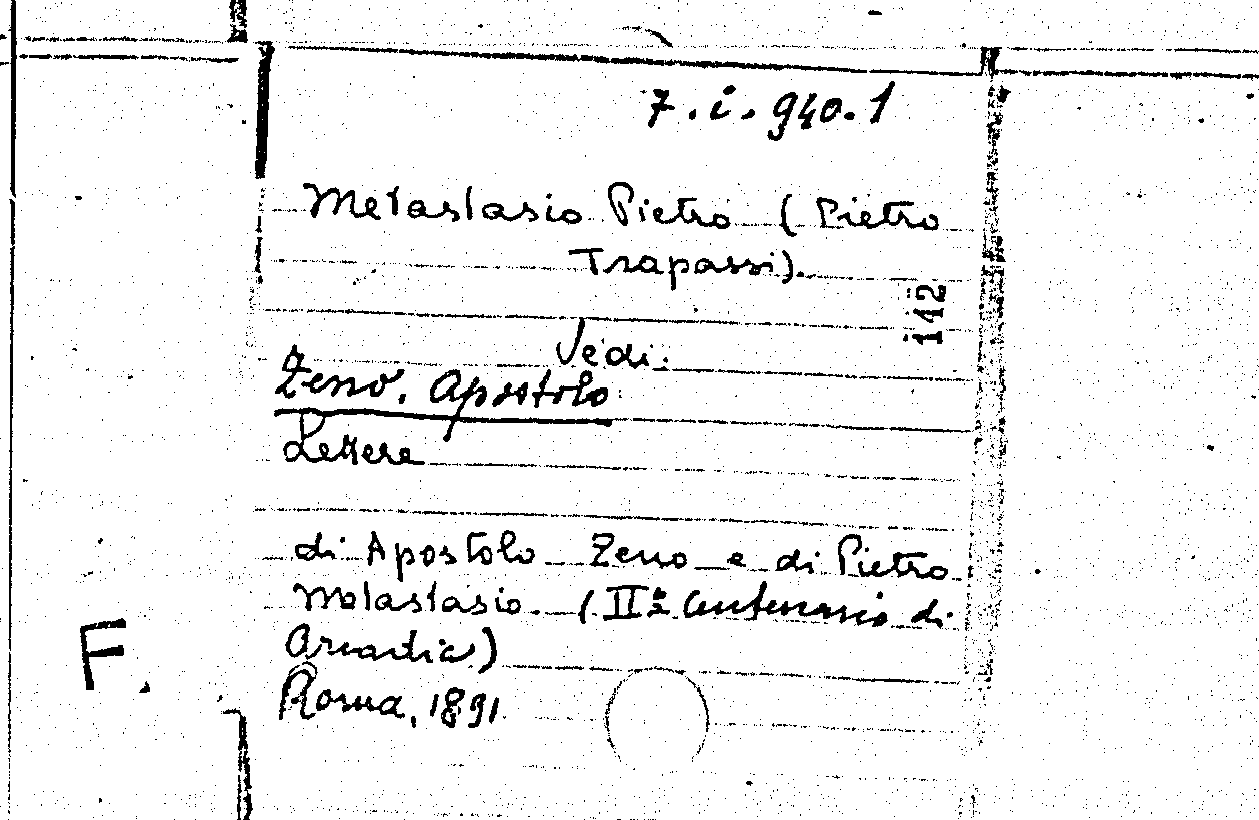 7.i.940.1
Metastasio Pietro (Pietro
Trapassi).
142
Vedi:
Zeno, Apostolo
Lettere
di Apostolo Zeno e di Pietro
Metastasio. (IIº Centenario di
Arcadia)
F.
Roma, 1891